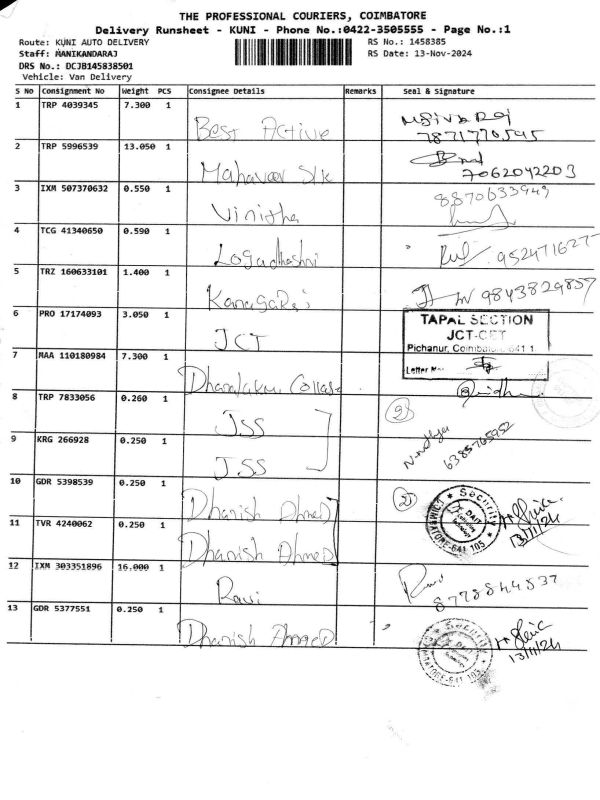 THE PROFESSIONAL COURIERS, COIMBATORE
Delivery Runsheet - KUNI - Phone No.:0422-3505555 - Page No.:1
Route: KUNI AUTO DELIVERY RS No.: 1458385
Staff: MANIKANDARAJ RS Date: 13-Nov-2024
DRS No.: DCJB145838501
Vehicle: Van Delivery
S No Consignment No Weight PCS Consignee Details Remarks Seal & Signature
1 TRP 4039345 7.300 1 Best Active 7871770595
2 TRP 5996539 13.050 1 Mahaveer Silk 7062042203
3 IXM 507370632 0.550 1 Vinitha 8870633949
4 TCG 41340650 0.590 1 Logadharshni 952471627
5 TRZ 160633101 1.400 1 Kanagaraj 9843829857
6 PRO 17174093 3.050 1 JCT
TAPAL SECTION
JCT-CET
Pichanur, Coimbatore 641 1
Letter No
7 MAA 110180984 7.300 1 Dhanalakmi College
8 TRP 7833056 0.260 1 JSS (2)
9 KRG 266928 0.250 1 JSS 6385765952
10 GDR 5398539 0.250 1 Dhanish Ahmed (2)
Security
DAIT
641 105
13/11/24
11 TVR 4240062 0.250 1 Dhanish Ahmed
12 IXM 303351896 16.000 1 Ravi 8778844537
13 GDR 5377551 0.250 1 Dhanish Ahmed
Security
641 105
13/11/24